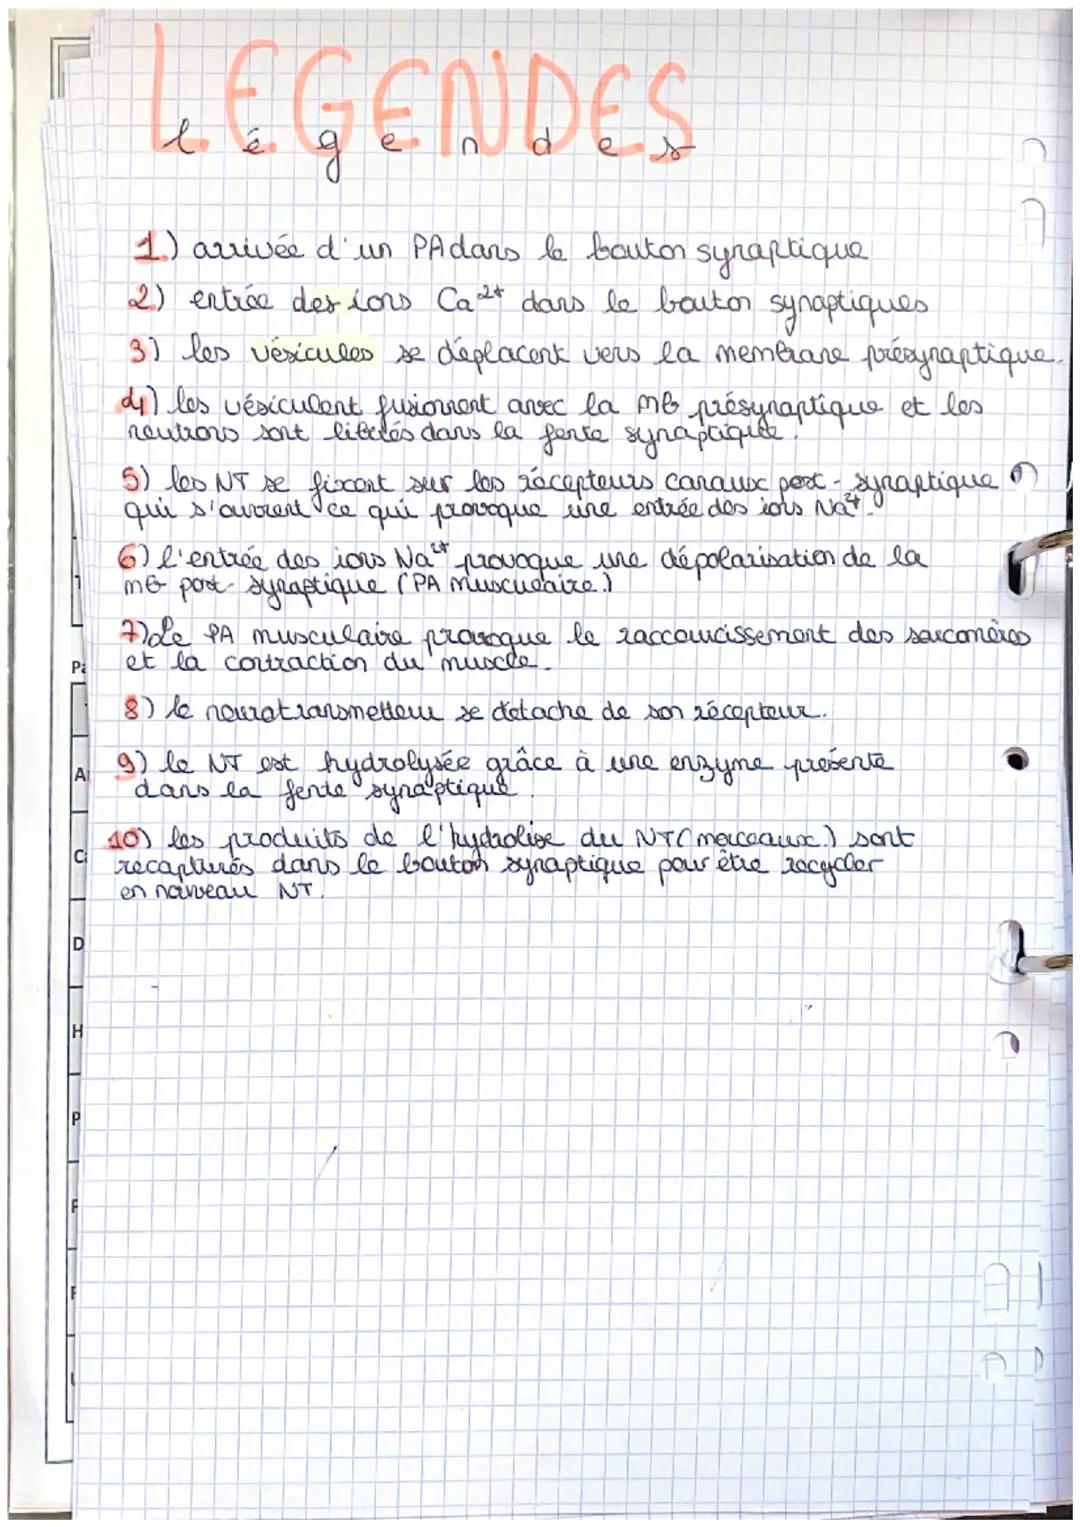 LEGENDES
légendes
1.) arrivée d'un PA dans le bouton synaptique
2) entrée des ions Ca²⁺ dans le bouton synaptiques
3) les vésicules se déplacent vers la membrane présynaptique.
4) les vésiculent fusionnent avec la mb présynaptique et les
neutrons sont libérés dans la fente synaptique.
5) les NT se fixent sur les récepteurs canaux post-synaptique
qui s'ouvrent ce qui provoque une entrée des ions Na²⁺.
6) l'entrée des ions Na²⁺ provoque une dépolarisation de la
mb post-synaptique (PA musculaire.)
7) Le PA musculaire provoque le raccourcissement des sarcomères
et la contraction du muscle.
8) le neurotransmetteur se détache de son récepteur.
9) le NT est hydrolysée grâce à une enzyme présente
dans la fente synaptique.
10) les produits de l'hydrolise du NT (morceaux.) sont
recapturés dans le bouton synaptique pour être recycler
en nouveau NT.
Pa
A
C
D
H
P